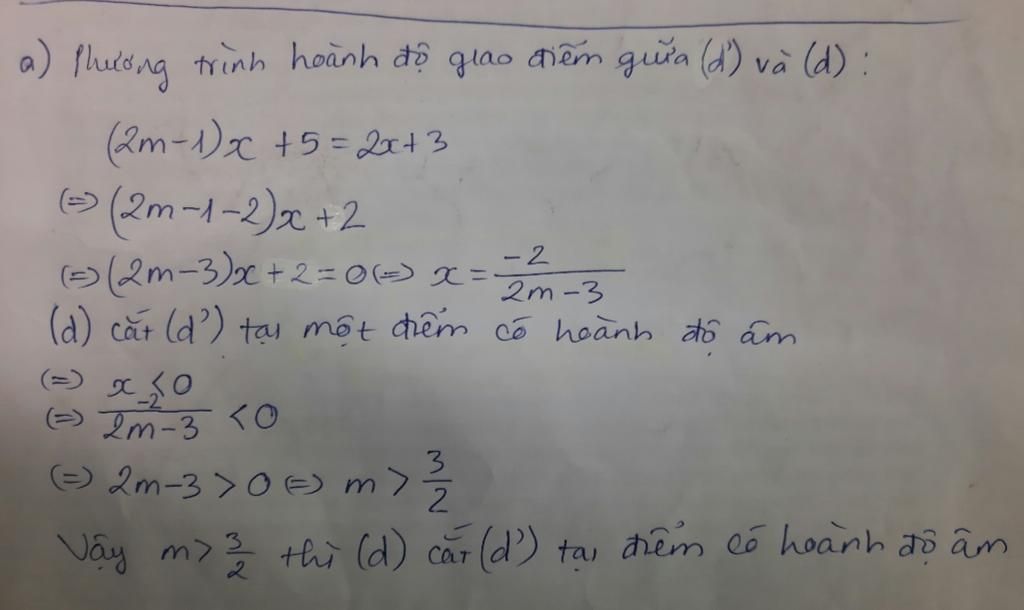 a) Phương trình hoành độ giao điểm giữa (d') và (d) :
(2m-1)x + 5 = 2x+3
(=) (2m-1-2)x + 2
(=) (2m-3)x + 2 = 0 (=) x = -2/2m-3
(d) cắt (d') tại một điểm có hoành độ âm
(=) x < 0
(=) -2/2m-3 < 0
(=) 2m-3 > 0 (=) m > 3/2
Vậy m > 3/2 thì (d) cắt (d') tại điểm có hoành độ âm